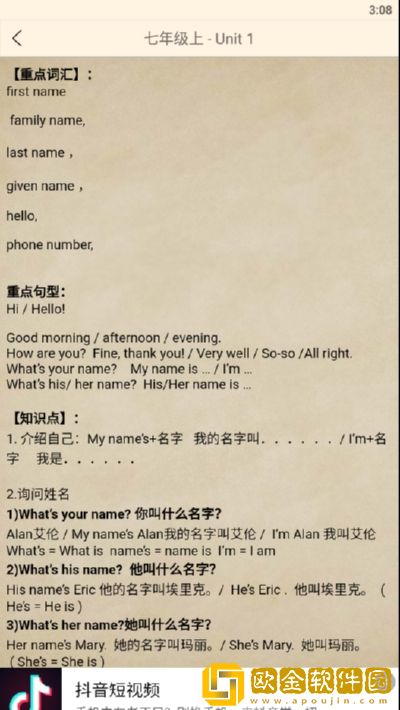 3:08
七年级上 - Unit 1
【重点词汇】：
first name
family name,
last name ，
given name ，
hello,
phone number,
重点句型：
Hi / Hello!
Good morning / afternoon / evening.
How are you? Fine, thank you! / Very well / So-so /All right.
What's your name? My name is ... / I'm ...
What's his/ her name? His/Her name is ...
【知识点】：
1. 介绍自己：My name's+名字 我的名字叫．．．．．．/ I'm+名
字 我是．．．．．．
2.询问姓名
1)What's your name? 你叫什么名字?
Alan艾伦 / My name's Alan我的名字叫艾伦 / I'm Alan 我叫艾伦
What's = What is name's = name is I'm = I am
2)What's his name? 他叫什么名字?
His name's Eric 他的名字叫埃里克。/ He's Eric . 他叫埃里克。 (
He's = He is )
3)What's her name?她叫什么名字?
Her name's Mary. 她的名字叫玛丽。/ She's Mary. 她叫玛丽。
( She's = She is )
抖音短视频
欧金软件园
www.apoujin.com